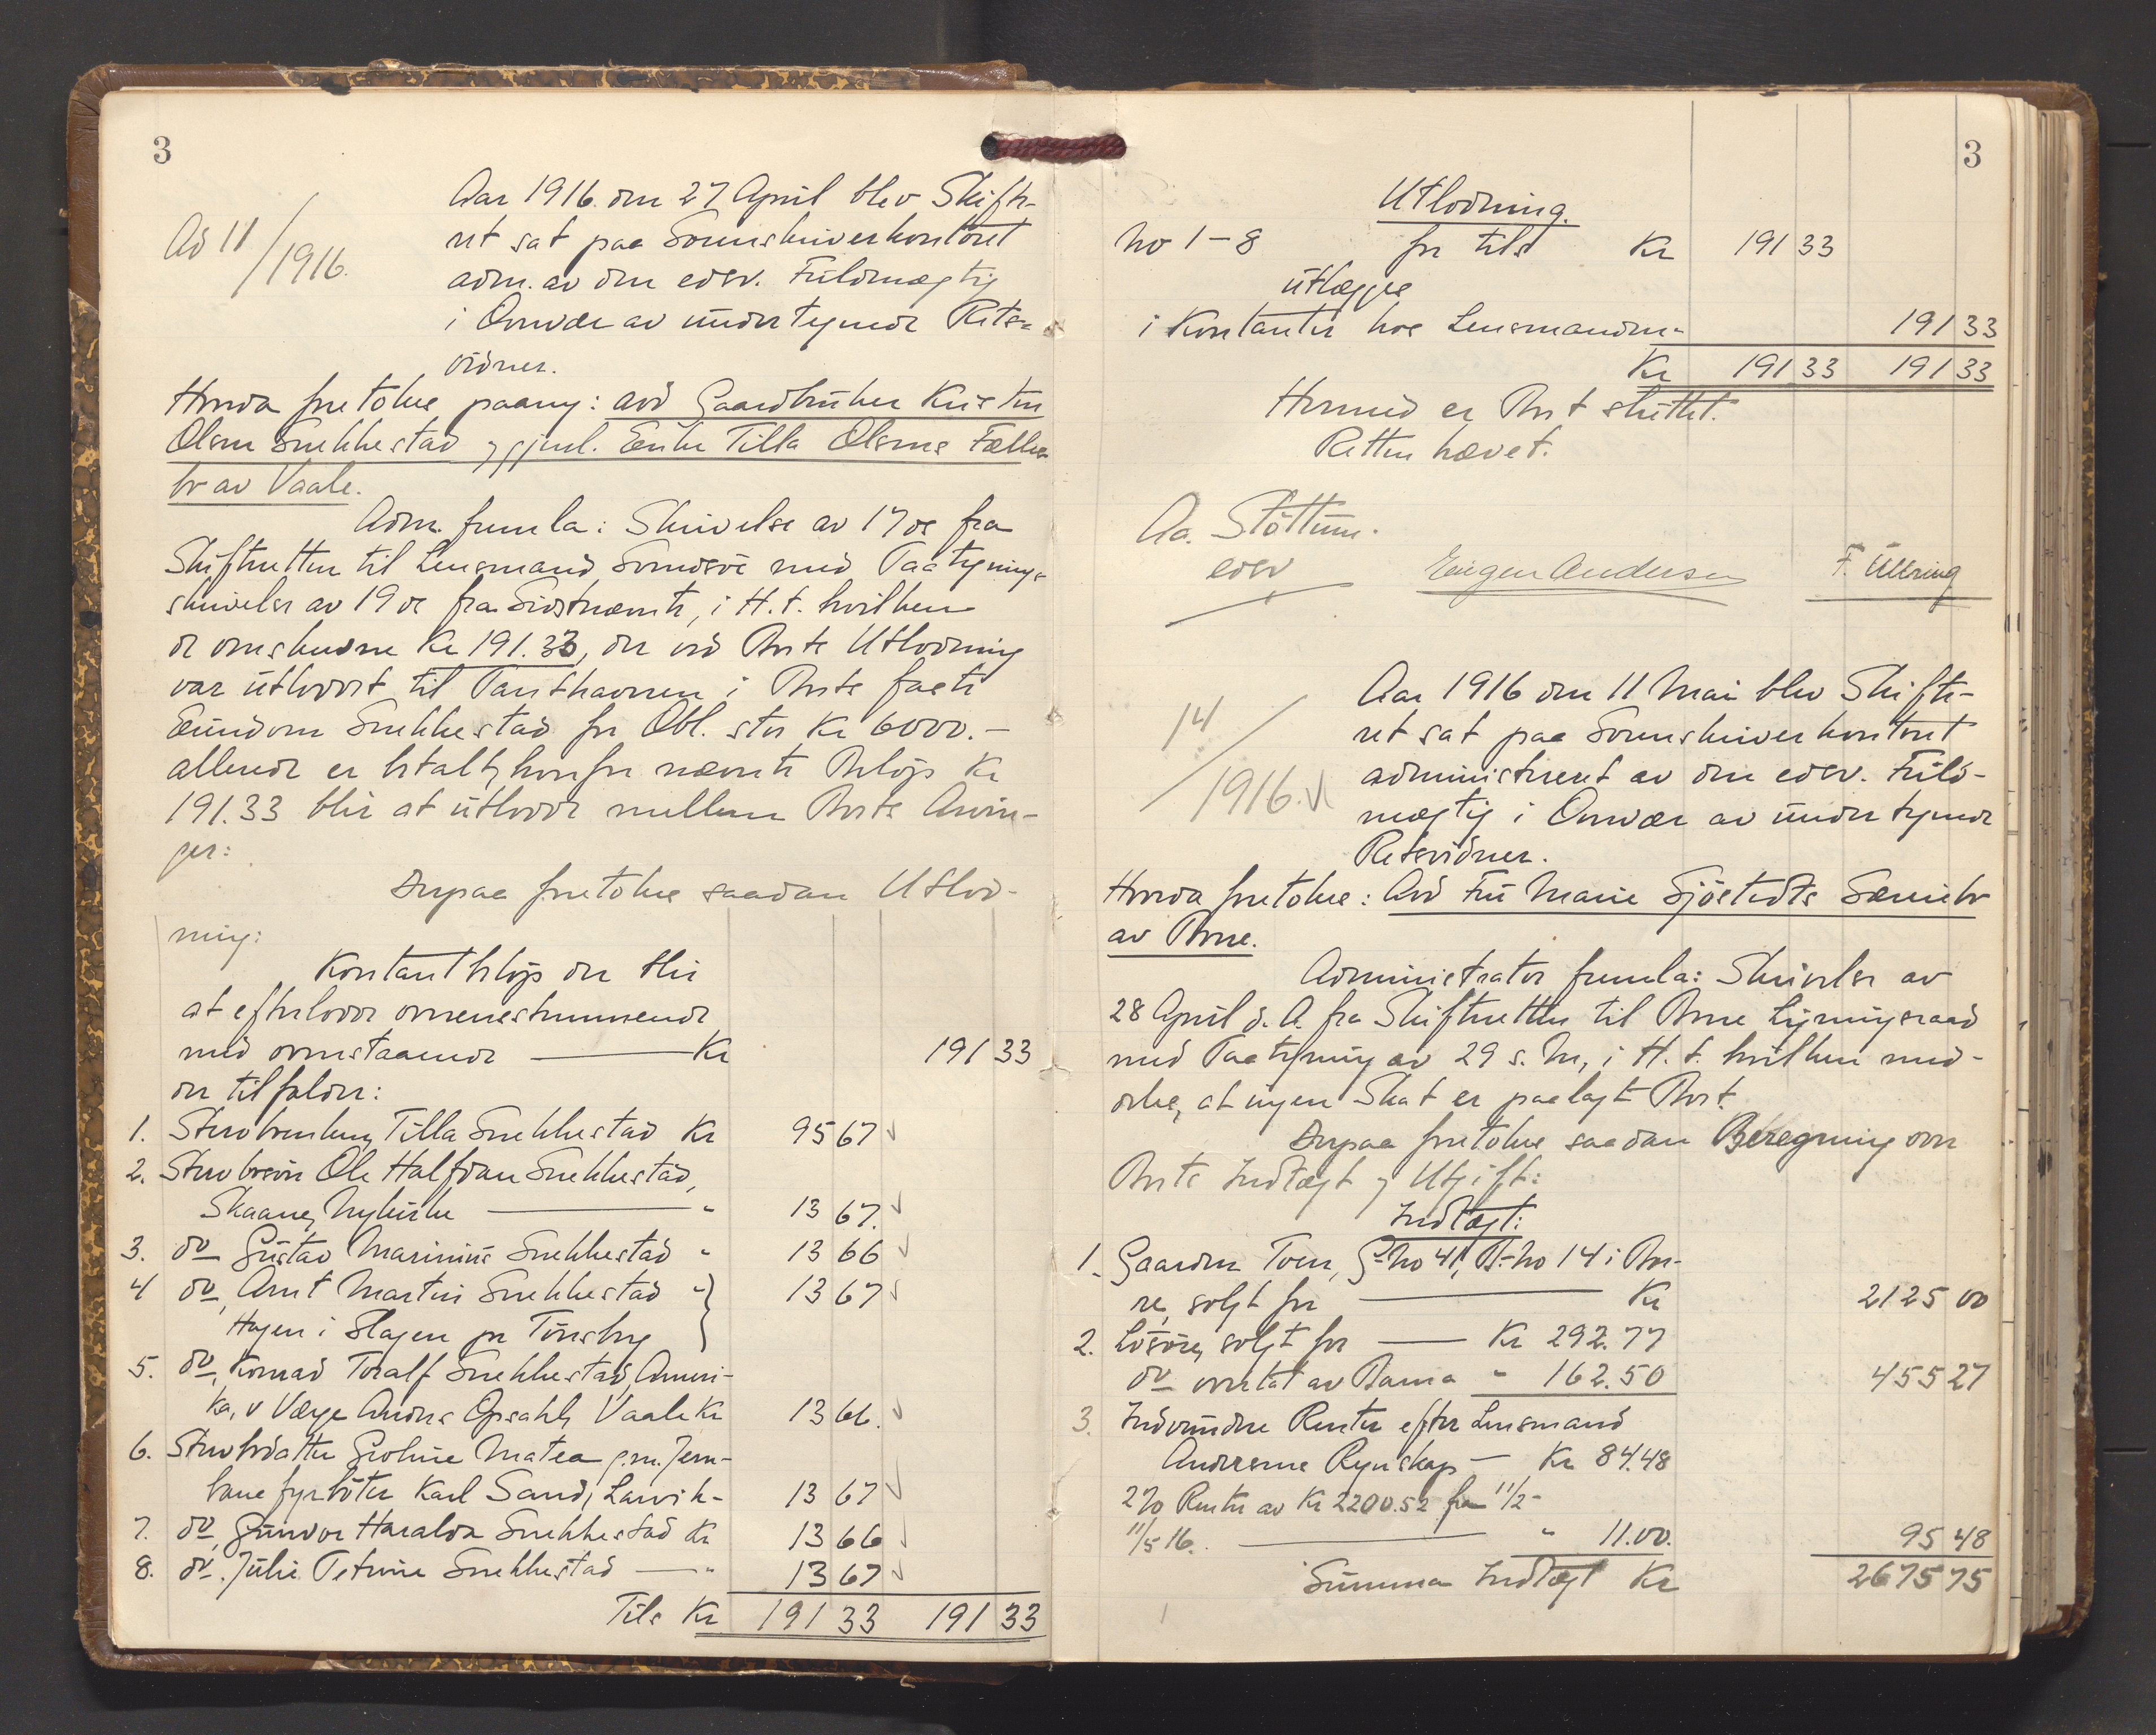 3
Ad 11/1916.
Aar 1916 den 27 April blev Skifte-
ret sat paa Sorenskriverkontoret
adm. av den edsv. Fuldmægtig
i Overvær av undertegnede Rets-
vidner.
Hvorda foretokes paany: avd Gaardbruker Kristen
Olsen Snekkestad og gjenl. Enke Tilla Olsens Fælles-
bo av Vaale.
Adm. fremla: Skrivelse av 17 ds fra
Skifteretten til Lensmand med Paategnings-
skrivelse av 19 ds fra Sidstnævnte, i H. t. hvilken
de omskrevne Kr 191.33, der ved Boets Utlodning
var utloddet til Panthaveren i Boets faste
Eiendom Snekkestad for Obl. stor Kr 6000.-
allerede er betalt, hvorfor nævnte Beløp Kr
191.33 blir at utlodde mellem Boets Arvin-
ger:
Derpaa foretokes saadan Utlod-
ning:
Kontantbeløp der blir
at efterlodde overensstemmende
med ovenstaaende Kr 191 33
der tilfalder:
1. Stervboenken Tilla Snekkestad Kr 95 67
2. Stervbosøn Ole Halfdan Snekkestad,
Skaane, Nykirke " 13 67.
3. do Gustav Marinius Snekkestad " 13 66
4 do, Arnt Martin Snekkestad " 13 67
Hagen i Slagen pr Tønsberg
5. do, Konrad Toralf Snekkestad, Ameri-
ka, v Værge Anders Opsahl, Vaale Kr 13 66.
6. Stervbodatter Groline Matea g.m. Jern-
banefyrbøter Karl Sand, Larvik - 13 67
7. do, Gunvor Haralda Snekkestad Kr 13 66
8. do. Julie Petrine Snekkestad " 13 67
Tils Kr 191 33 191 33
3
Utlodning.
No 1-8 for tils Kr 191 33
utlægges
i Kontanter hos Lensmanden - 191 33
Kr 191 33 191 33
Hermed er Boet sluttet.
Retten hævet.
Aa. Støttum.
edsv
Eugen Andersen
F. Ullring
14/1916.
Aar 1916 den 11 Mai blev Skifte-
ret sat paa Sorenskriverkontoret
administreret av den edsv. Fuld-
mægtig i Overvær av undertegnede
Retsvidner.
Hvorda foretokes: Avd Fru Marie Sjøstedts Særeiebo
av Borre.
Administrator fremla: Skrivelse av
28 April d. A. fra Skifteretten til Borre Ligningsraad
med Paategning av 29 s. M., i H. t. hvilken med-
deles, at ingen Skat er paalagt Boet.
Derpaa foretokes saadan Beregning over
Boets Indtægt og Utgift:
Indtægt:
1. Gaarden Toen, G-No 41, B-No 14 i Bor-
re, solgt for Kr 2125 00
2. Løsøre, solgt for Kr 292.77
do overtat av Barna " 162.50 455 27
3. Indvundne Renter efter Lensmand
Andersens Regnskap - Kr 84.48
2% Renter av Kr 2200.52 fra 11/2-
11/5 16. " 11.00. 95 48
Summa Indtægt Kr 2675 75